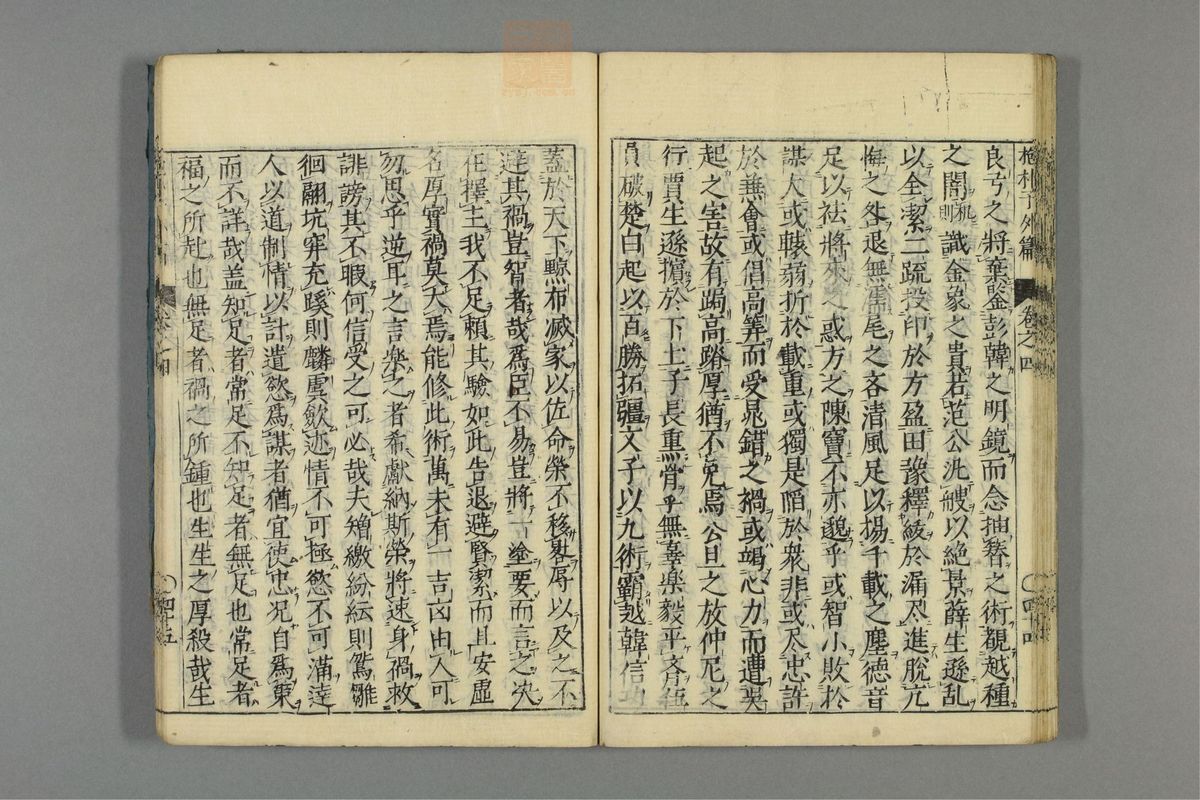 抱朴子外篇 卷之四 〇四十四
良弓之將棄鑒彭韓之明鏡而念抽簪之術覩越種
之闇機則識金象之貴若范公汎艘以絕景薛生遜亂
以全潔二疏投印於方盈田豫釋紱於漏尽進脫亢
悔之咎退無濡尾之吝清風足以揚千載之塵德音
足以祛將來之惑方之陳竇不亦邈乎或智小敗於
謀大或轅弱折於載重或獨是陷於衆非或尽忠訐
於兼會或倡高筭而受晁錯之禍或竭心力而遭吳
起之害故有跼高蹐厚猶不免焉公旦之放仲尼之
行賈生遜擯於下士子長熏骨乎無辜樂毅平齊伍
員破楚白起以百勝拓疆文子以九術霸越韓信功
蓋於天下黥布滅家以佐命榮不移晷辱以及之不
避其禍豈智者哉爲臣不易豈將一塗要而言之决
在擇主我不足賴其驗如此告退避賢潔而且安虛
名厚實禍莫大焉能修此術萬未有一吉凶由人可
勿思乎逆耳之言樂之者希獻納斯榮將速身禍救
誹謗其不暇何信受之可必哉夫矰繳紛紜則鴛雛
徊翮坑穽充蹊則麟虞歛迹情不可極慾不可滿達
人以道制情以計遣慾爲謀者猶宜使忠况自爲策
而不詳哉盖知足者常足不知足者無足也常足者
福之所赴也無足者禍之所鍾也生生之厚殺哉生
〇四十五